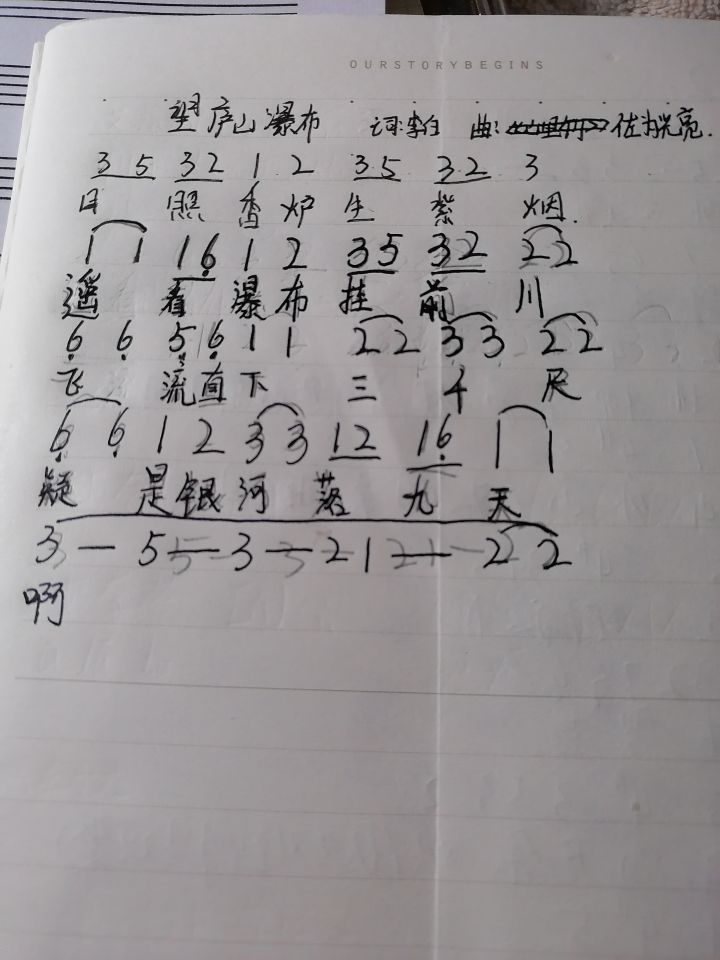 OURSTORYBEGINS
望庐山瀑布 词:李白 曲:
3 5 32 1 2 35 32 3
日 照 香 炉 生 紫 烟.
1 1 16 1 2 35 32 22
遥 看 瀑 布 挂 前 川
6 6 5 6 1 1 22 33 22
飞 流 直 下 三 千 尺
6 6 1 2 3 3 12 16 1 1
疑 是 银 河 落 九 天
3 — 5 — 3 — 21 — 22
啊